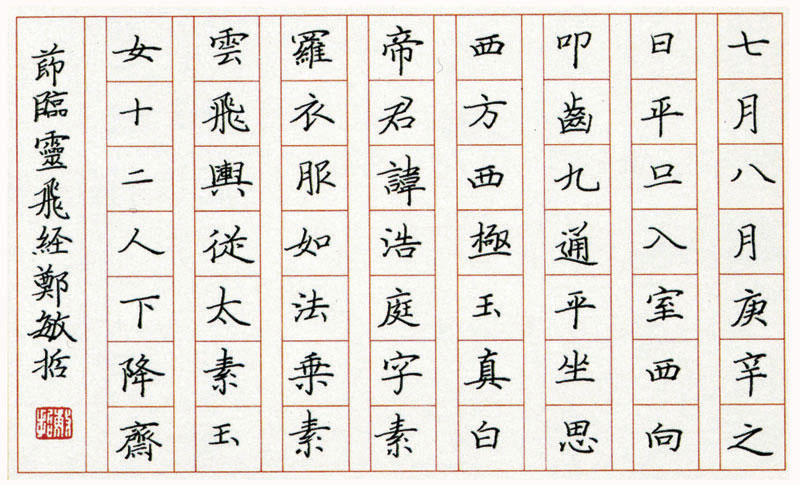 七月八月庚辛之
日平旦入室西向
叩齒九通平坐思
西方西極玉真白
帝君諱浩庭字素
羅衣服如法乗素
雲飛輿從太素玉
女十二人下降齋
莭臨靈飛经鄭敏哲
敏哲